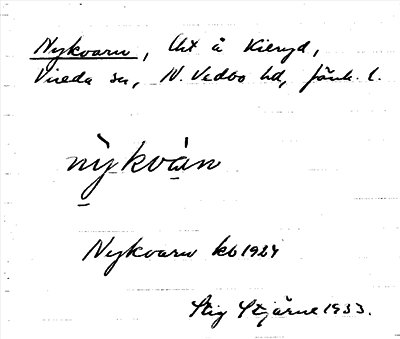 Nykvarn, Lht å Kieryd,
Vireda sn, N. Vedbo hd, Jönk. l.
nỳkvàn
Nykvarn kb 1927
Stig Stjärne 1933.